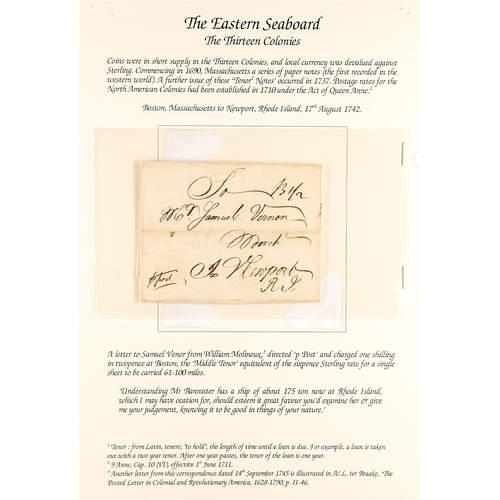 The Eastern Seaboard
The Thirteen Colonies
Coins were in short supply in the Thirteen Colonies, and local currency was devalued against
Sterling. Commencing in 1690, Massachusetts a series of paper notes (the first recorded in the
western world). A further issue of these "Tenor¹ Notes' occurred in 1737. Postage rates for the
North American Colonies had been established in 1710 under the Act of Queen Anne.²
Boston, Massachusetts to Newport, Rhode Island, 17th August 1742.
To B 1/2
Mr. Samuel Vernon
Merch
In Newport
R I
p Post
A letter to Samuel Venor from William Molineux,³ directed 'p Post' and charged one shilling
in twopence at Boston, the 'Middle Tenor' equivalent of the sixpence Sterling rate for a single
sheet to be carried 61-100 miles.
'Understanding Mr Bannister has a ship of about 175 ton now at Rhode Island,
which I may have ocation for, should esteem it great favour you'd examine her & give
me your judgement, knowing it to be good in things of your nature.'
¹ Tenor : from Latin, tenere, "to hold", the length of time until a loan is due. For example, a loan is taken
out with a two year tenor. After one year passes, the tenor of the loan is one year.
² 9 Anne, Cap. 10 (VI), effective 1st June 1711.
³ Another letter from this correspondence dated 14th September 1745 is illustrated in A.L. ter Braake, "The
Posted Letter in Colonial and Revolutionary America, 1628-1790, p. 11-46.